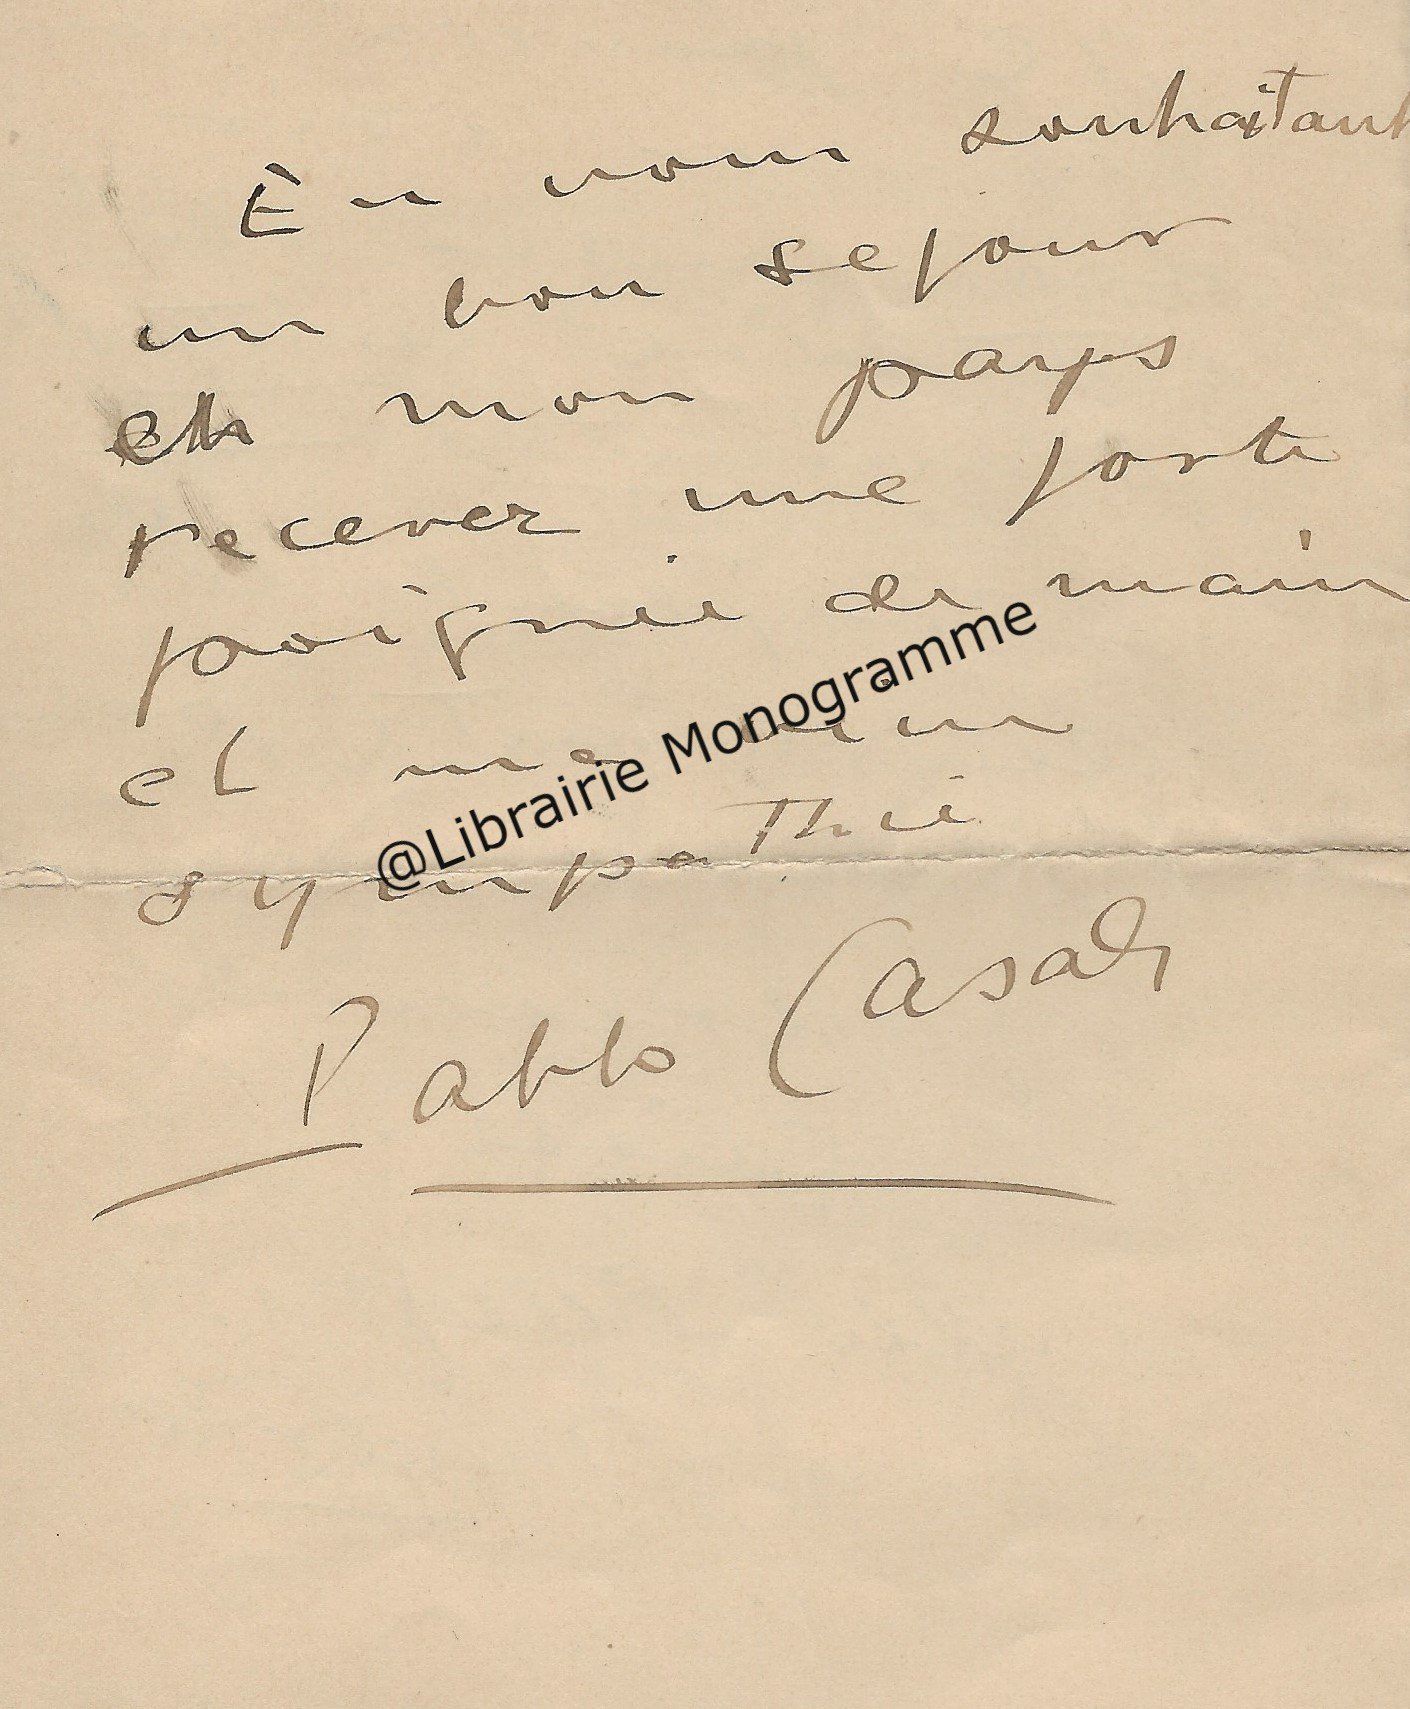 En vous souhaitant
un bon sejour
en mon pays
recevez une forte
poignée de main
et ma
sympathie
Pablo Casals
@Librairie Monogramme